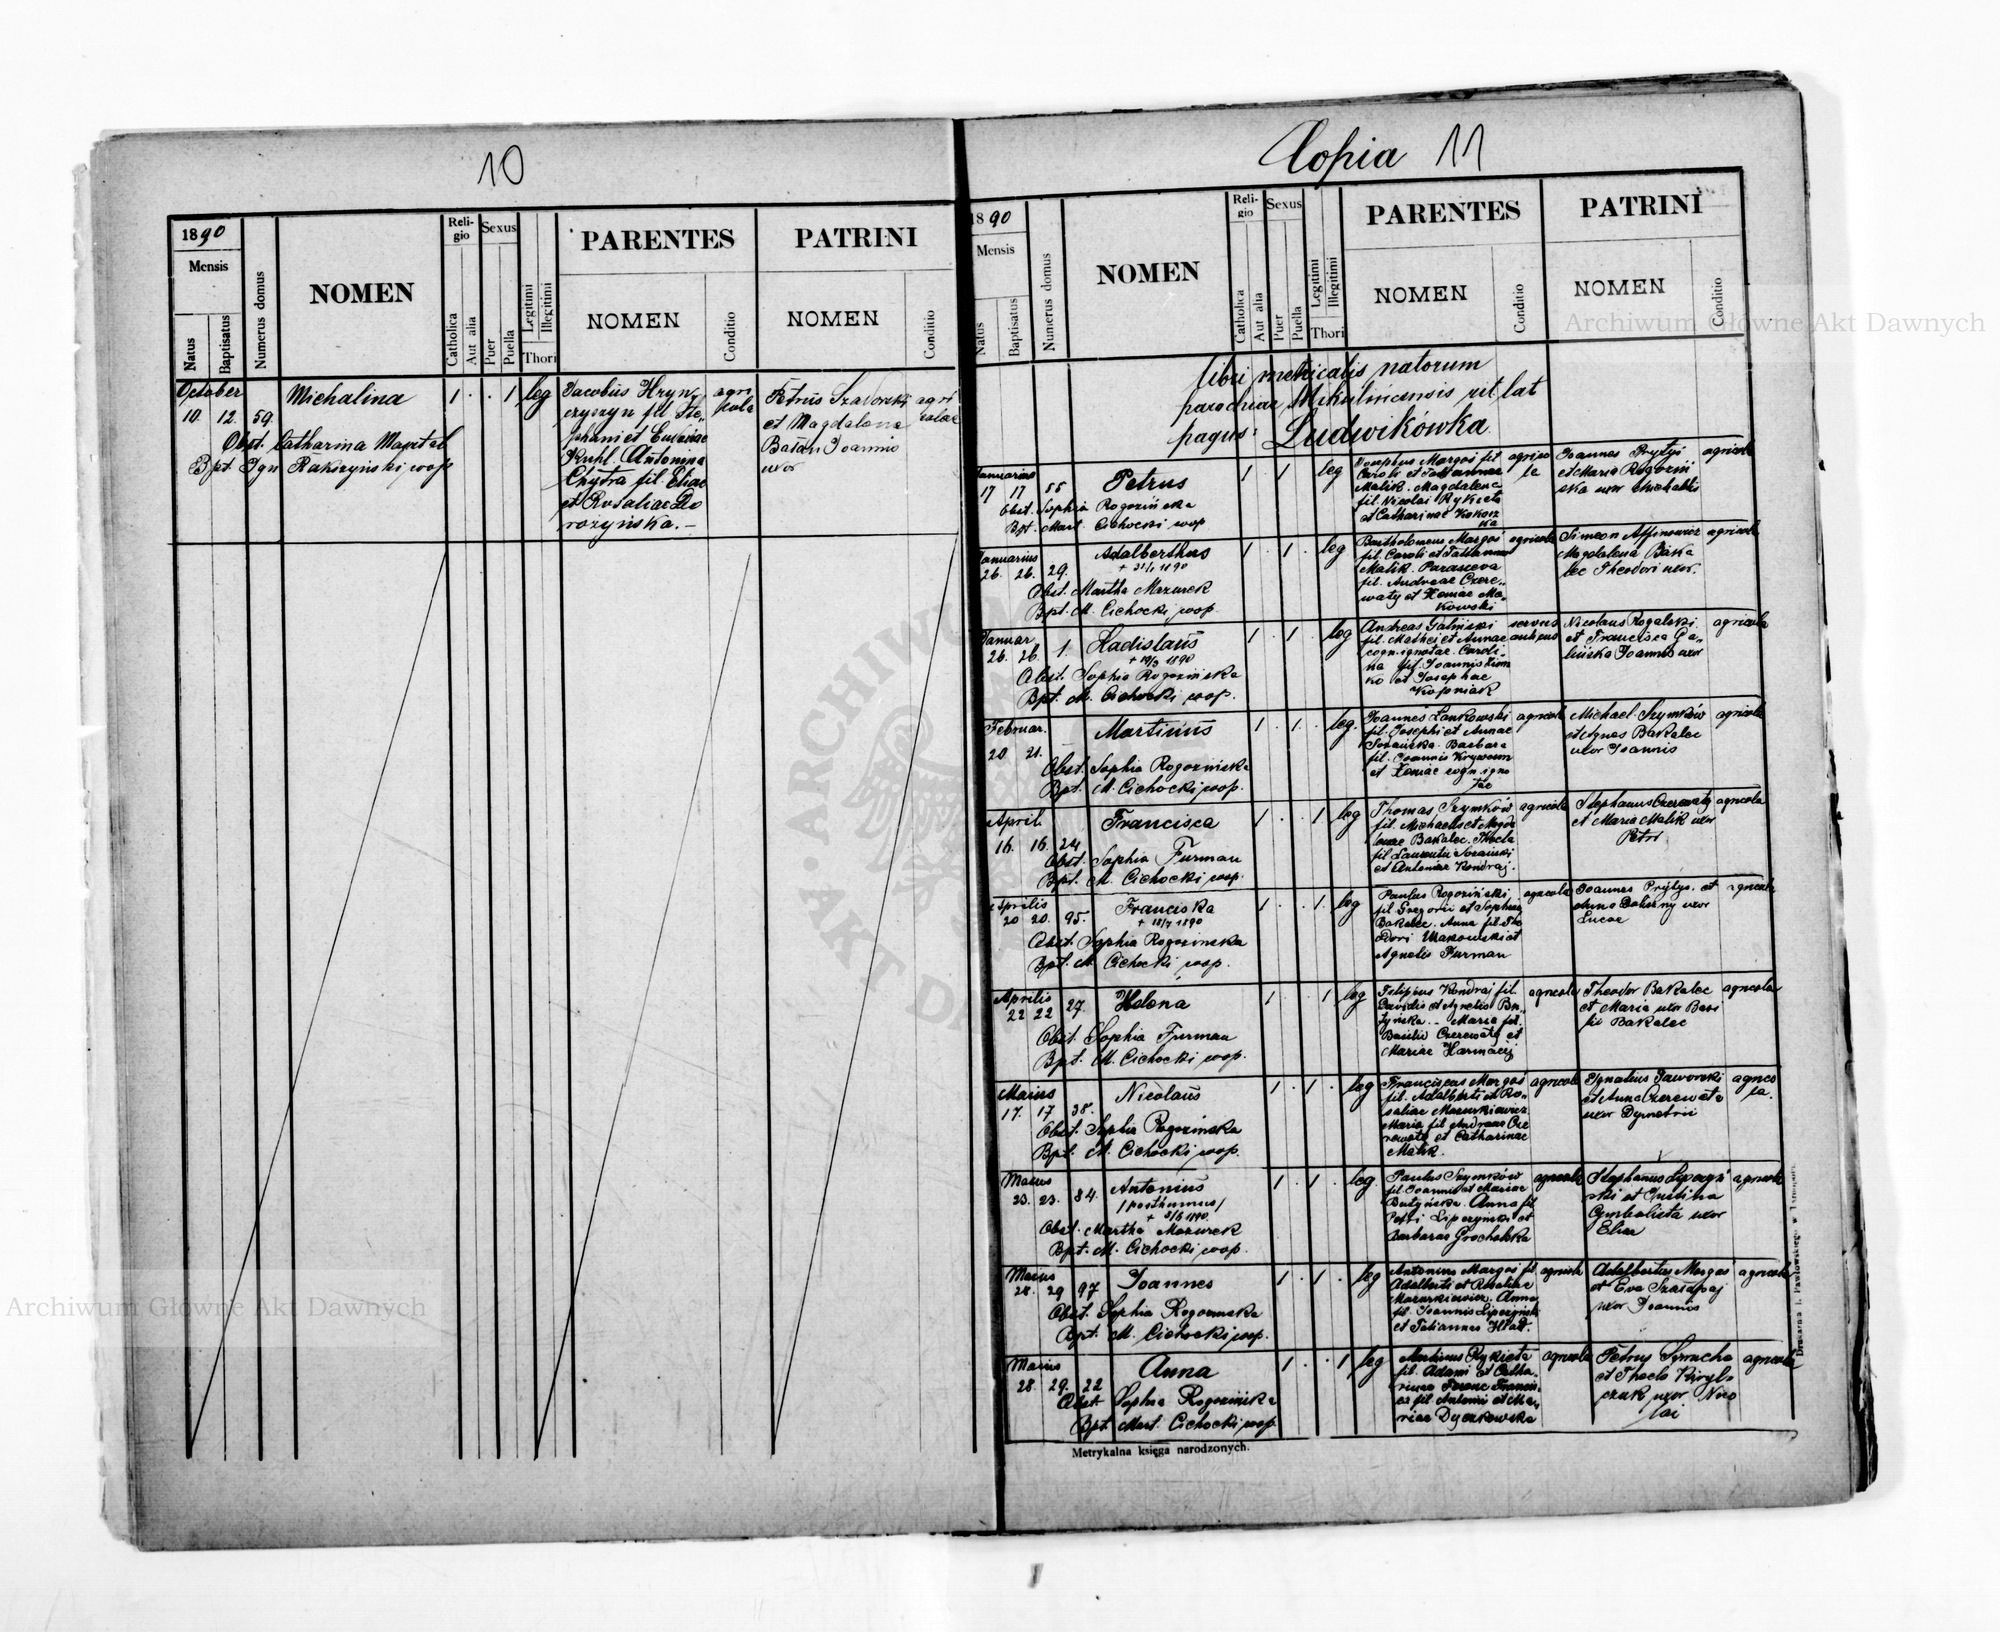 10
1890
Mensis
Natus
Baptisatus
Numerus domus
NOMEN
Religio
Catholica
Aut alia
Sexus
Puer
Puella
Legitimi
Illegitimi
Thori
PARENTES
NOMEN
Conditio
PATRINI
NOMEN
Conditio
October
10. 12. 59. Michalina 1 . . 1 leg
Obst. Catharina
Bpt. Ign Rakszyński coop
Jacobus Hryn
czyszyn fil Ste„
phani et
Kuhl. Antonina
Chytra fil. Eliae
et Rosaliae Do
rożyńska.—
agri
cola
Petrus
et Magdalena
Joannis
uxor
agri
colae
Copia 11
1890
Mensis
Natus
Baptisatus
Numerus domus
NOMEN
Religio
Catholica
Aut alia
Sexus
Puer
Puella
Legitimi
Illegitimi
Thori
PARENTES
NOMEN
Conditio
PATRINI
NOMEN
Conditio
libri metricalis natorum
parochiae Mikulincensis rit lat
pagus: Ludwikówka
Januarius
17 17 Petrus 1 . 1 . leg
Obst. Sophia Rogozińska
Bpt. Mart. Cichocki coop
Josephus Margas fil
Caroli et Tatiannae
Malik. Magdalena
fil. Nicolai Rykieta
et Catharinae Kokosz
ka
agrico
la
Joannes Prytyś
et Maria Rogoziń
ska uxor Michaelis
agricola
Januarius
26. 26. 29. Adalberthus 1 . 1 . leg
+ 31/1 1890
Obst. Martha Mazurek
Bpt. M. Cichocki coop.
Bartholomeus Margas
fil. Caroli et Tatiannae
Malik. Parasceva
fil. Andreae Czere„
waty et Xeniae Ma„
kowski
agricola
Simeon
Magdalena Baka
lec Theodori uxor.
agricola
Januar
26. 26. 1. Ladislaus 1 . 1 . leg
1890
Obst. Sophia Rogozińska
Bpt. M. Cichocki coop.
Andreas Galiński
fil. Mathei et Annae
cogn. ignotae. Caroli„
na fil. Joannis
ko et Josephae
Kopniak
servus
Nicolaus Rogalski
et Francisca Ga„
lińska Joannis uxor
agricola
Februar.
20 21. Martinus 1 . 1 . leg.
Obst. Sophia Rogozińska
Bpt. M. Cichocki coop.
Joannes Lankowski
fil. Josephi et Annae
Sozańska. Barbara
fil. Joannis
et Xeniae cogn. igno
tae
agricola
Michael Szymków
et Agnes Bakalec
uxor Joannis
agricola
April.
16. 16. 24 Francisca 1 . . 1 leg
Obst. Sophia Furman
Bpt. M. Cichocki coop.
Thomas Szymków
fil. Michaelis et Magda
lenae Bakalec. Thecla
fil. Laurentii Sozański
et Antoniae Kondraj.
agricola
Stephanus Czerewaty
et Maria Malik uxor
Petri
agricola
Aprilis
20 20. 95. Franciska 1 . . 1 leg
1890
Obst. Sophia Rogozinska
Bpt. M. Cichocki coop.
Paulus Rogoziński
fil. Gregorii et Sophiae
Bakalec. Anna fil. The
odori Makowski et
Agnetis Furman
agricola
Joannes Prytys. et
Anna uxor
Lucae
agricola
Aprilis
22 22 27. Helena 1 . . 1 leg
Obst. Sophia Furman
Bpt. M. Cichocki coop.
Filippus Kondraj fil.
Davidis et Agnetis Bu„
tyńska.— Maria fil.
Basilii Czerewaty et
Mariae Harmacij
agricola
Theodor Bakalec
et Maria uxor Basi
lii Bakalec
agricola
Maius
17. 17 38. Nicolaus 1 . 1 . leg
Obst. Sophia Rogozinska
Bpt. M. Cichocki coop.
Franciscus Margas
fil. Adalberti et Ro„
saliae Mazurkiewicz
Maria fil Andreae Cze
rewaty et Catharinae
Malik.
agricola
Ignatius Jaworski
et Anna Czerewata
uxor Dymetrii
agrico
la.
Maius
23. 23. 84. Antonius 1 . 1 . leg.
/posthumus/
1890
Obst. Martha Mazurek
Bpt. M. Cichocki coop.
Paulus Szymków
fil. Joannis et Mariae
Butyńska. Anna fil
Petri Lipczynski et
Barbarae Grochalska
agricola
Stephanus Lipczyń
ski et Justina
Cymbalista uxor
Eliae
agricola
Maius
28. 29 97 Joannes 1 . 1 . leg
Obst. Sophia Rogozinska
Bpt. M. Cichocki coop.
Antonius Margas fil
Adalberti et Rosaliae
Mazurkiewicz. Anna
fil. Joannis Lipczyński
et Tatiannae
agricola
Adalbertus Margas
et Eva
uxor Joannis
agricola
Maius
28. 29. 22 Anna 1 . . 1 leg
Obst. Sophia Rogozińska
Bpt. Mart. Cichocki coop.
Martinus Rykieta
fil. Adami et Catha„
rinae Francis
ca fil Antonii et Ma„
riae Dyczkowska
agricola
Petrus
et Thecla
czuk uxor Nico
lai
agricola
Metrykalna księga narodzonych.
Archiwum Główne Akt Dawnych
Archiwum Główne Akt Dawnych